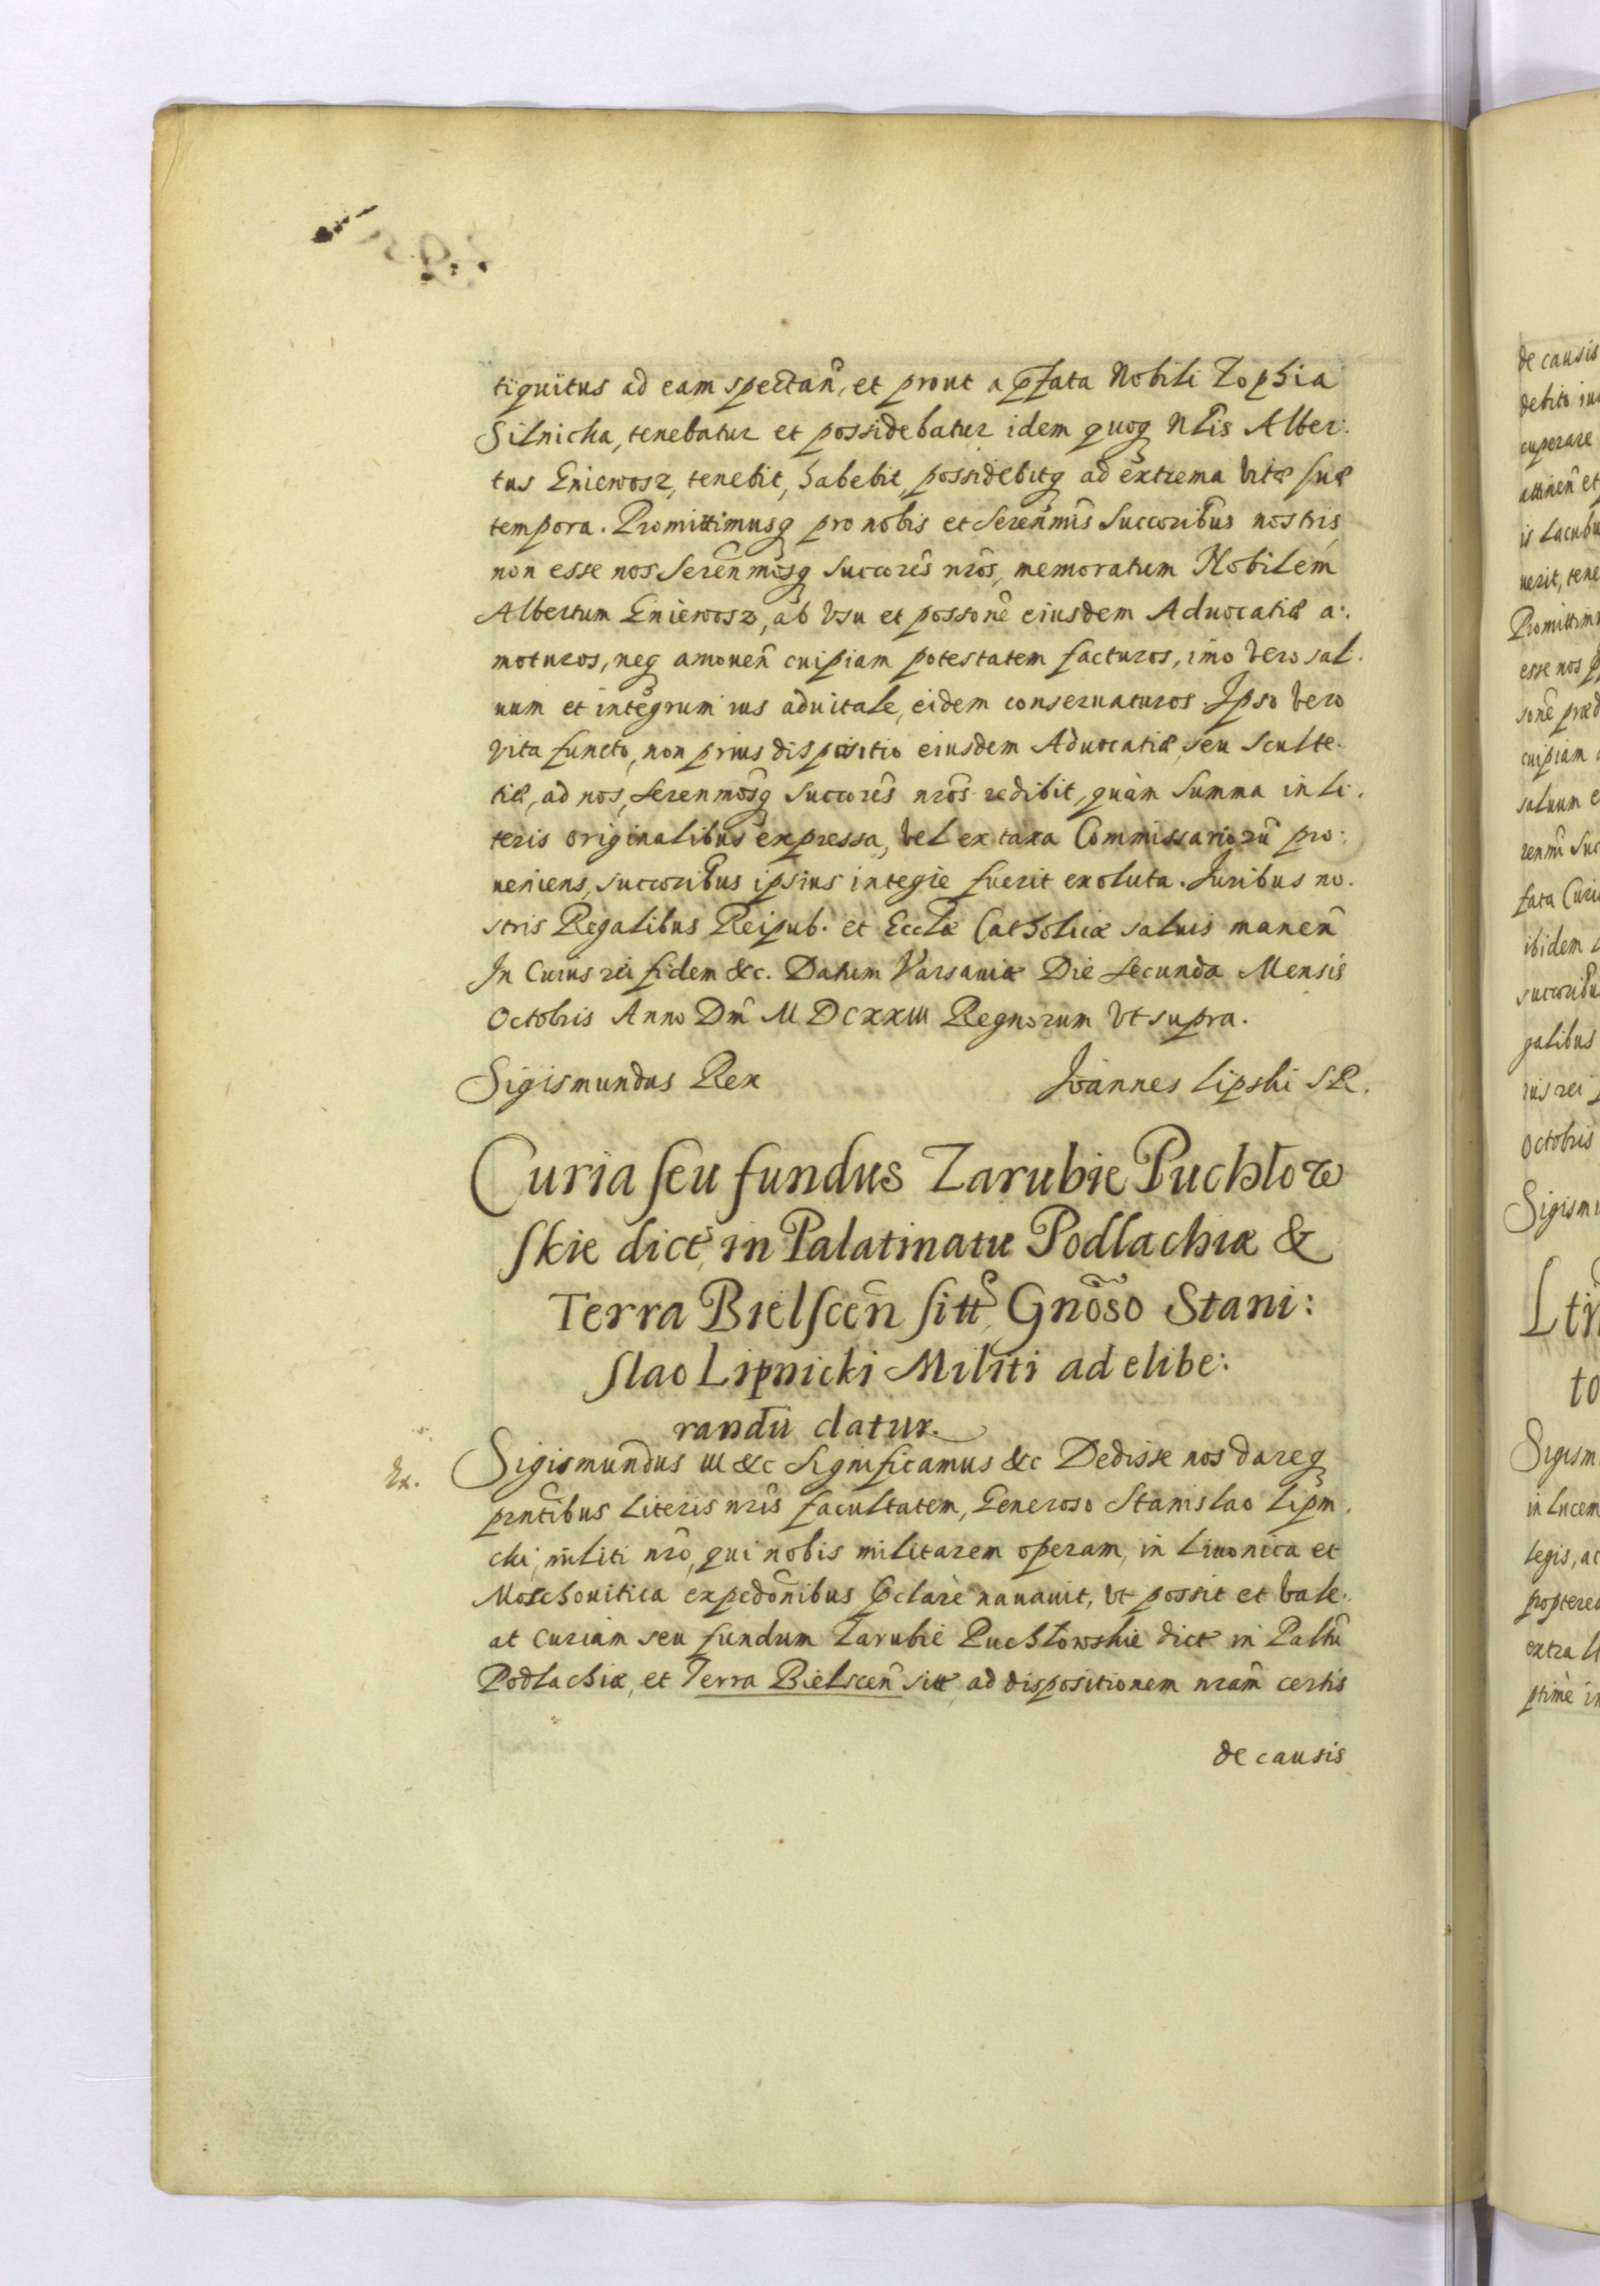 tiquitus ad eam spectan̄, et prout a p̄fata Nobili Zophia
Silnicka, tenebatur et possidebatur idem quoq Nl̄is Alber:
tus Gniewosz, tenebit, habebit, possidebitq ad extrema vitæ suæ
tempora. Promittimusq pro nobis et Seren̄mis Succoribus nostris,
non esse nos Seren̄mosq Succores nr̄os, memoratum Nobilem
Albertum Gniewosz, ab vsu et possone eiusdem Aduocatiæ a:
moturos, neq amouen̄ cuipiam potestatem facturos, imo vero sal.
uum et integrum ius aduitale, eidem conseruaturos Ipso vero
vita functo, non prius dispositio eiusdem Aduocatiæ, seu Sculte.
tiæ, ad nos, Seren̄mosq Succores nr̄os redibit, quàm Summa in li.
teris originalibus expressa, vel ex taxa Commissariorū pro:
ueniens, succoribus ipsius integre fuerit exoluta. Iuribus no.
stris Regalibus Reipub. et Eccl̄æ Catholicæ saluis manen̄
In Cuius rei fidem &c. Datum Varsauiæ Die Secunda Mensis
Octobris Anno Dn̄i MDCXXIII Regnorum Vt supra.
Sigismundus Rex Ioannes Lipski SR.
Curia seu fundus Zarubie Puchłow
skie dict, in Palatinatu Podlachiæ &
Terra Bielscen̄ sitt, Gnōso Stani:
slao Lipnicki Militi ad elibe:
randū datur.
Ex. Sigismundus III &c Significamus &c Dedisse nos dareq
prn̄tibus Literis nr̄is facultatem, Generoso Stanislao Lipni.
cki, militi nr̄o, qui nobis militarem operam, in Liuonica et
Moschouitica expedōnibus p̄clarè nauauit, vt possit et vale.
at Curiam seu fundum Zarubie Puchłowskie dict in Paltū
Podlachiæ, et Terra Bielscen̄ sitt, ad dispositionem nrām certis
de causis